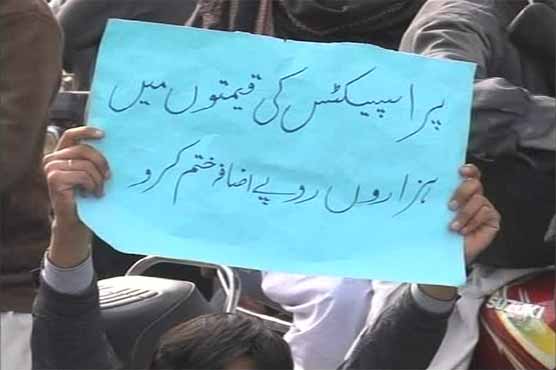 پراسپیکٹس کی قیمتوں میں
ہزاروں روپے اضافہ ختم کرو
SUZUKI